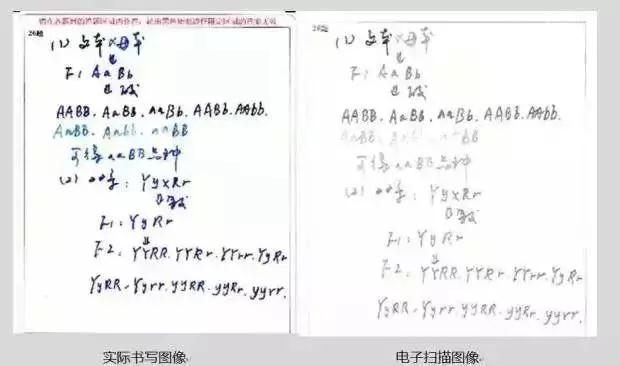 26题
(1) 父本×母本
F1 AaBb
AABB. AaBB. aaBb. AABb. AAbb.
AaBB. Aabb. aaBB
可得aaBB品种
(2) YyxRr
F1: YyRr
F2: YYRR. YYRr. YYrr. YyRr
YyRR. Yyrr. yyRR. yyRr. yyrr.
实际书写图像
26题
(1) 父本×母本
F1 AaBb
AABB. AaBB. aaBb. AABb. AAbb.
AaBB. Aabb. aaBB
可得aaBB品种
(2) YyxRr
F1: YyRr
F2. YYRR. YYRr. YYrr. YyRr
YyRR. Yyrr. yyRR. yyRr. yyrr.
电子扫描图像